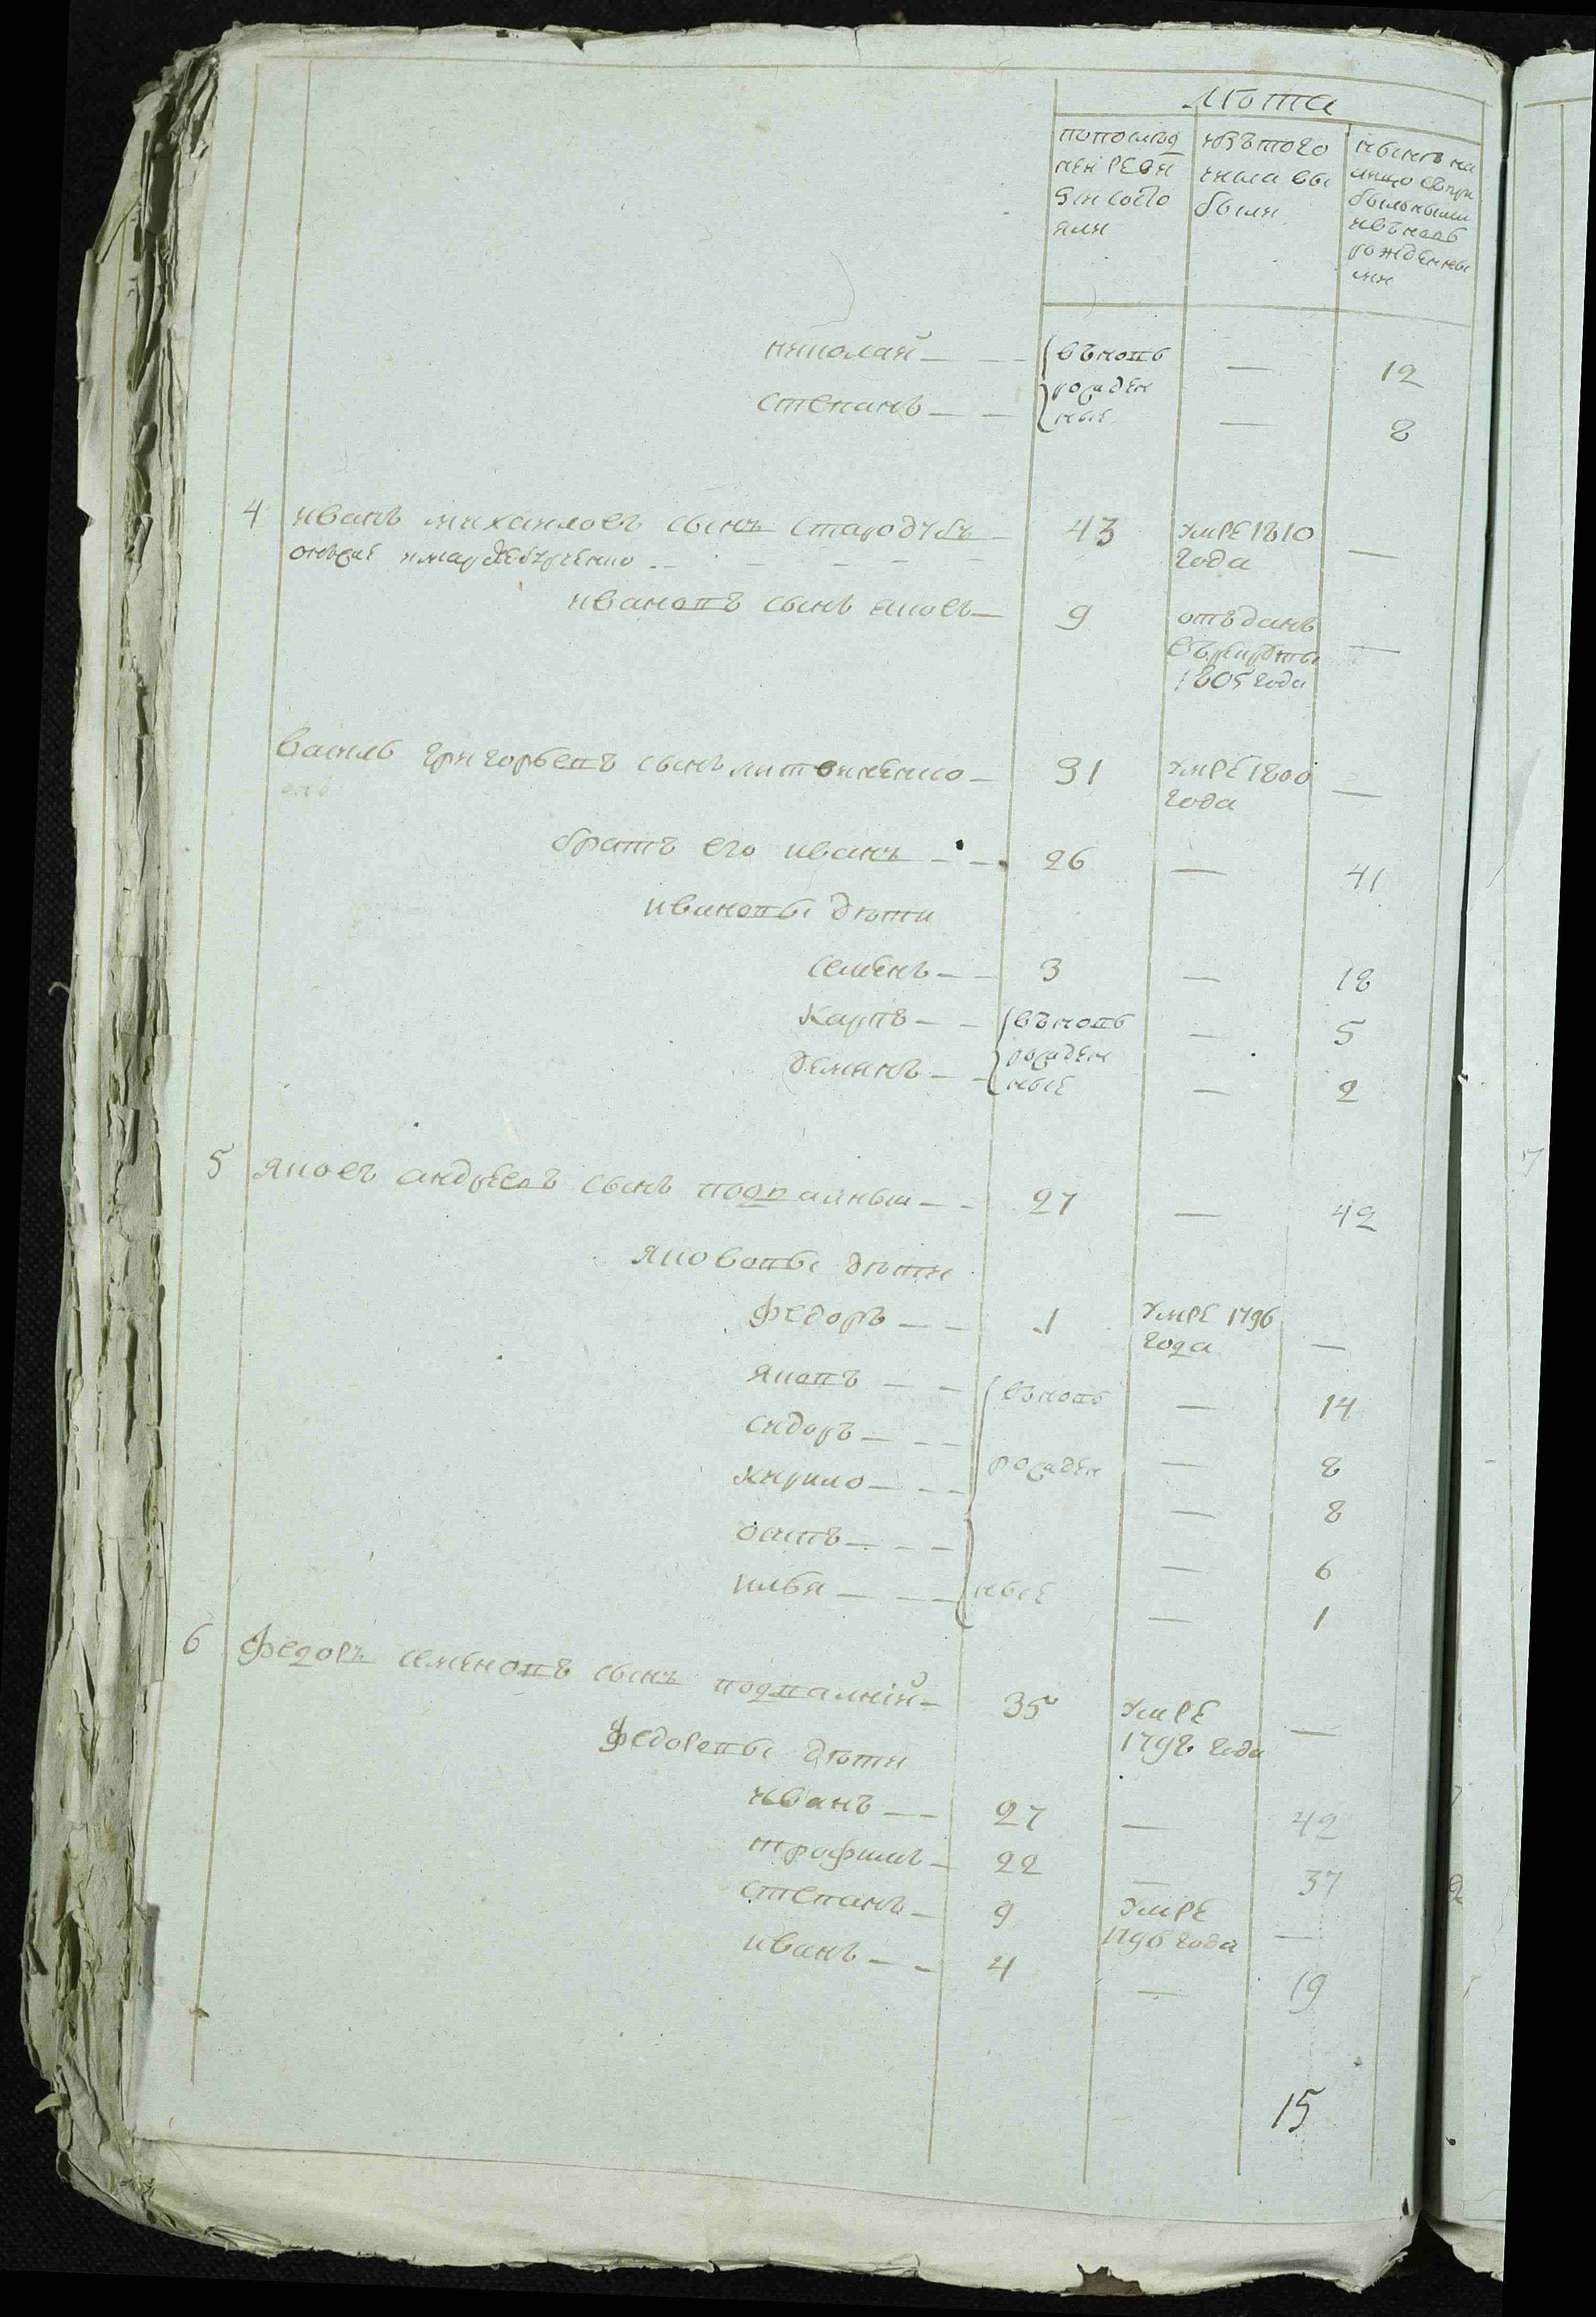 Лѣта
попослѣд ней ревизіи состояли
изътого числа выбыли
нынѣ налицо съприбылыми ивновь рожденными
николай — (въновь рожденные — 12
степанъ — — 8
4 иванъ михаиловъ сынъ стародубъ — 43 умре 1810 года —
онъже
ивановъ сынъ яковъ — 9 отъданъ въ рекруты 1805 года —
василь григорьевъ сынъ литвиненко — 31 умре 1800 года —
братъ его иванъ — 26 — 41
ивановы дѣти
семенъ — 3 — 18
карпъ — (въновь рожденные — 5
деминъ — — 2
5 яковъ андреевъ сынъ подпалный — 27 — 42
яковлевы дѣти
федоръ — 1 умре 1796 года —
яковъ — (въновь — 14
сидоръ — рожден — 8
кирило — — 8
осипъ — — 6
илья — ные — 1
6 федоръ семеновъ сынъ подпалній — 35 умре 1798 года —
федоровы дѣти
иванъ — 27 — 42
трофимъ — 22 — 37
степанъ — 9 умре 1796 года —
иванъ — 4 — 19
15